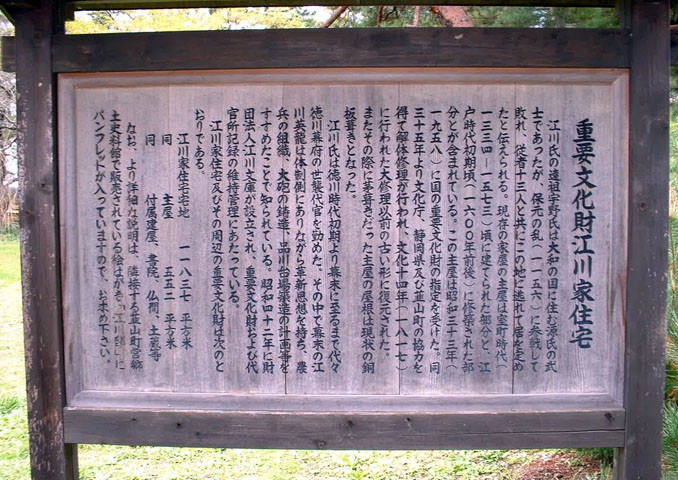 重要文化財江川家住宅
江川氏の遠祖宇野氏は大和の国に住む源氏の武
士であったが、保元の乱(一一五六)に参戦して
敗れ、従者十三人と共にこの地に逃れて居を定め
たと伝えられる。現存の家屋の主屋は室町時代(
一三三四ー一五七三)頃に建てられた部分と、江
戸時代初期頃(一六〇〇年前後)に修築された部
分とが含まれている。この主屋は昭和三十三年(
一九五八)に国の重要文化財の指定を受けた。同
三十五年より文化庁、静岡県及び韮山町の協力を
得て解体修理が行われ、文化十四年(一八一七)
に行われた大修理以前の古い形に復元された。
またその際に茅葺きだった主屋の屋根は現状の銅
板葺きとなった。
江川氏は徳川時代初期より幕末に至るまで代々
徳川幕府の世襲代官を勤めた。その中で幕末の江
川英龍は体制側にありながら革新思想を持ち、農
兵の組織、大砲の鋳造、品川台場築造の計画等を
すすめたことで知られている。昭和四十二年に財
団法人江川文庫が設立され、重要文化財および代
官所記録の維持管理にあたっている。
江川家住宅及びその周辺の重要文化財は次のと
おりである。
江川家住宅宅地 一一八三七 平方米
同 主屋 五五二 平方米
同 付属建屋、書院、仏間、土蔵等
なお、より詳細な説明は、隣接する韮山町営郷
土史料館で販売されている絵はがき「江川邸」に
パンフレットが入っていますので、お求め下さい。